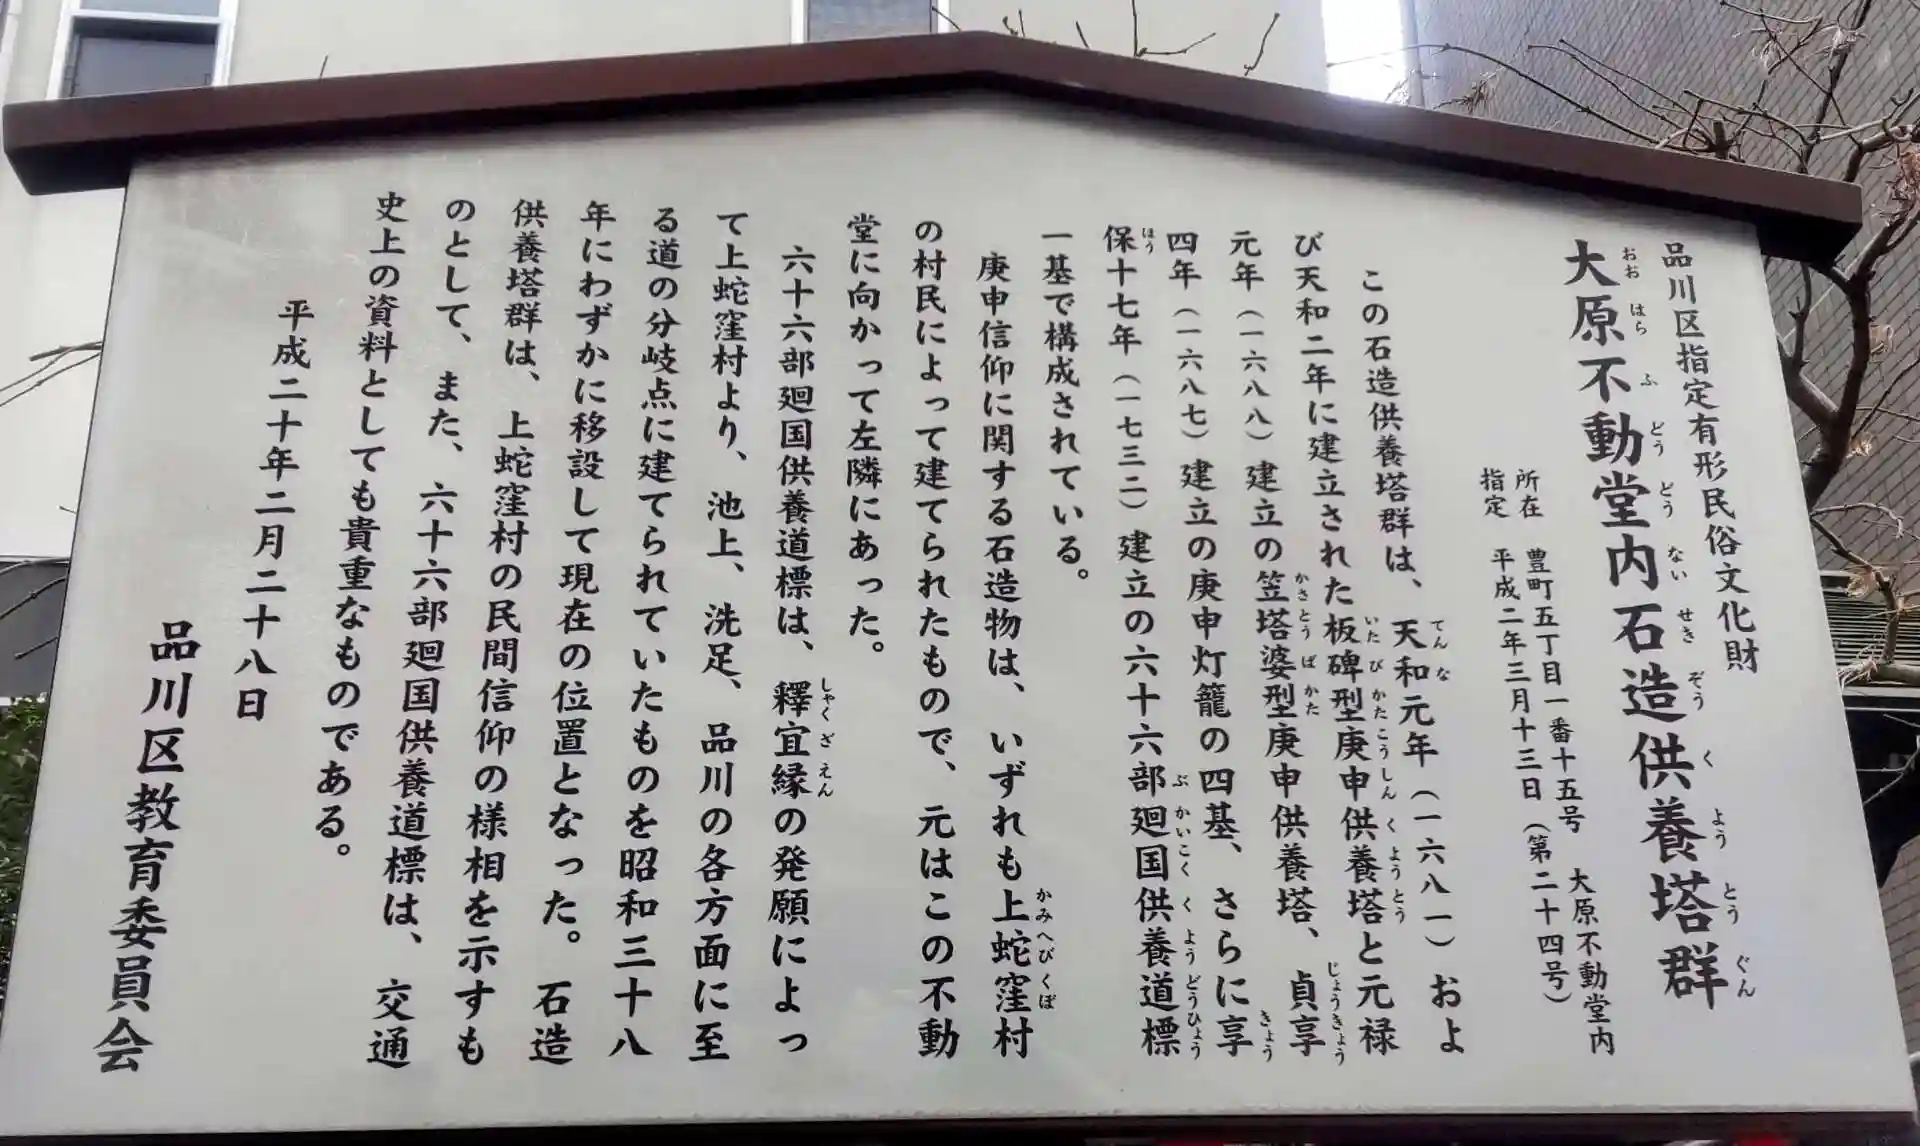 品川区指定有形民俗文化財
おおはらふどうどうないせきぞうくようとうぐん
大原不動堂内石造供養塔群
所在　豊町五丁目一番十五号　大原不動堂内
指定　平成二年三月十三日（第二十四号）
てんな
この石造供養塔群は、天和元年（一六八一）およ
いたびかたこうしんくようとう
び天和二年に建立された板碑型庚申供養塔と元禄
かさとうばかた　じょうきょう
元年（一六八八）建立の笠塔婆型庚申供養塔、貞享
きょう
四年（一六八七）建立の庚申灯籠の四基、さらに享
ほう　ぶかいこくくようどうひょう
保十七年（一七三二）建立の六十六部廻国供養道標
一基で構成されている。
かみへびくぼ
庚申信仰に関する石造物は、いずれも上蛇窪村
の村民によって建てられたもので、元はこの不動
堂に向かって左隣にあった。
しゃくぎえん
六十六部廻国供養道標は、釋宜縁の発願によっ
て上蛇窪村より、池上、洗足、品川の各方面に至
る道の分岐点に建てられていたものを昭和三十八
年にわずかに移設して現在の位置となった。石造
供養塔群は、上蛇窪村の民間信仰の様相を示すも
のとして、また、六十六部廻国供養道標は、交通
史上の資料としても貴重なものである。
平成二十年二月二十八日
品川区教育委員会